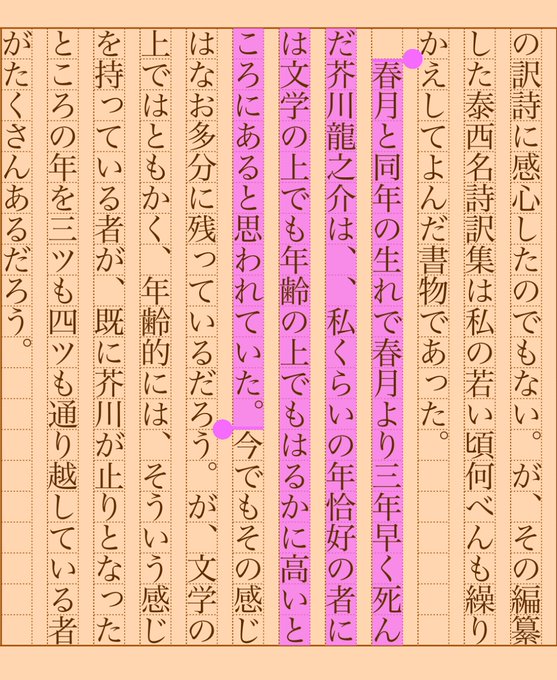 の訳詩に感心したのでもない。が、その編纂
した泰西名詩訳集は私の若い頃何べんも繰り
かえしてよんだ書物であった。
春月と同年の生れで春月より三年早く死ん
だ芥川龍之介は、、私くらいの年恰好の者に
は文学の上でも年齢の上でもはるかに高いと
ころにあると思われていた。今でもその感じ
はなお多分に残っているだろう。が、文学の
上ではともかく、年齢的には、そういう感じ
を持っている者が、既に芥川が止りとなった
ところの年を三ツも四ツも通り越している者
がたくさんあるだろう。